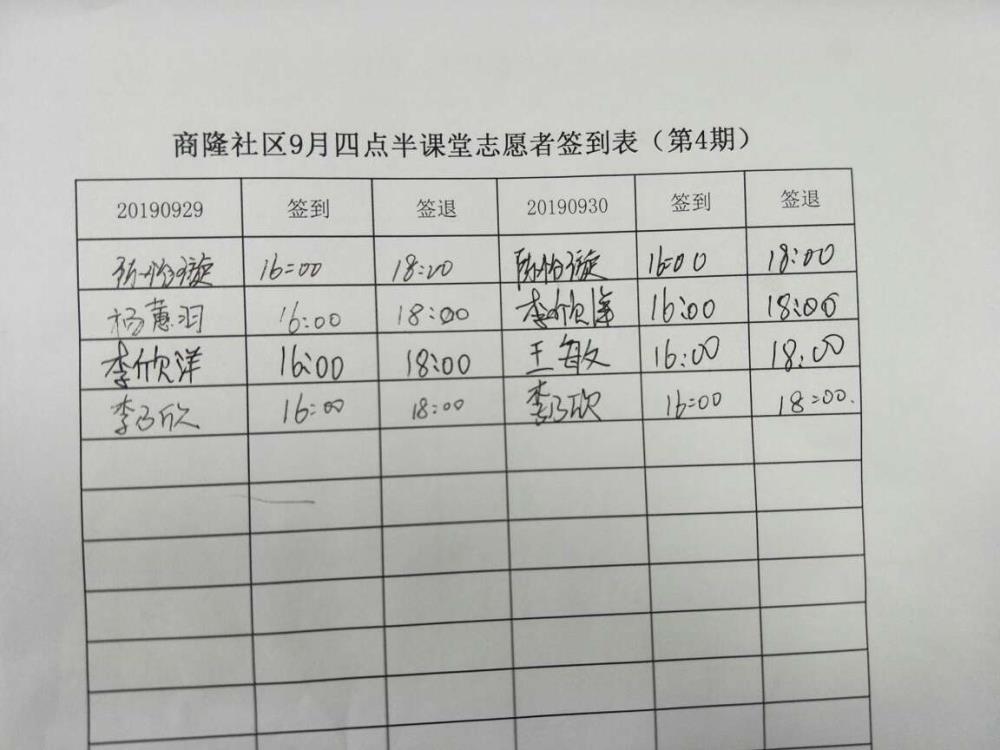 商隆社区9月四点半课堂志愿者签到表（第4期）
20190929 签到 签退 20190930 签到 签退
怡璇 16:00 18:00 陈怡璇 16:00 18:00
杨蕙羽 16:00 18:00 李欣洋 16:00 18:00
李欣洋 16:00 18:00 王敏 16:00 18:00
李乃欣 16:00 18:00 李乃欣 16:00 18:00.